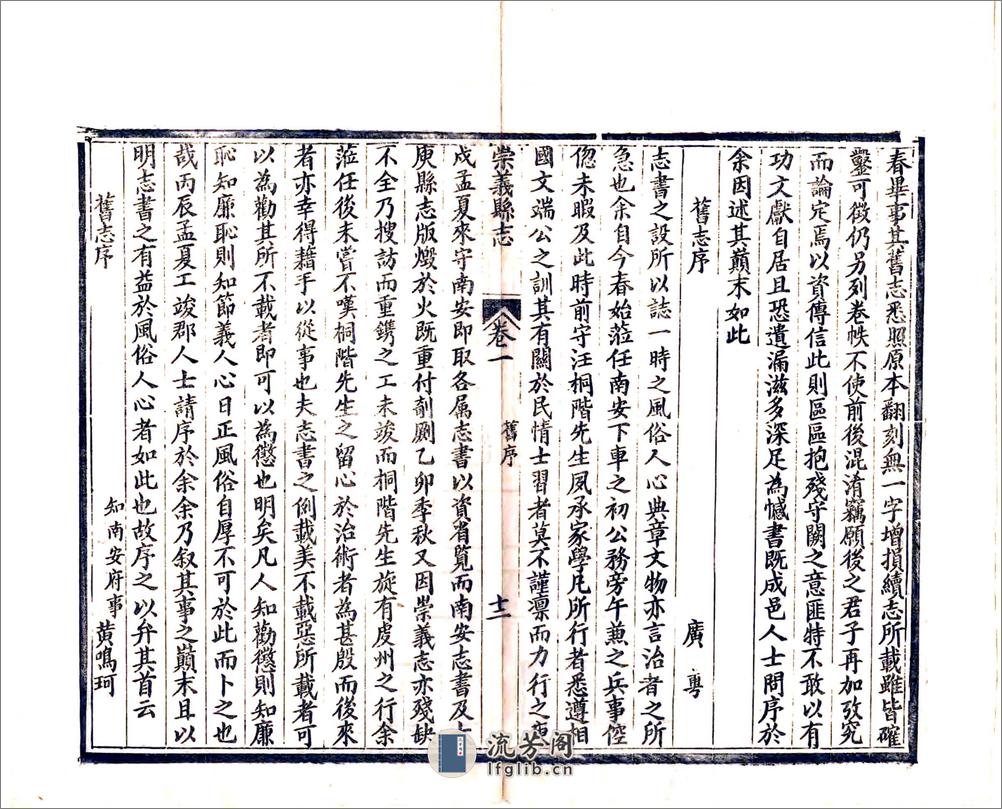 春畢事其舊志悉照原本翻刻無一字增損續志所載雖皆確
鑿可徵仍另列卷帙不使前後混淆竊願後之君子再加攷究
而論定焉以資傳信此則區區抱殘守闕之意匪特不敢以有
功文獻自居且恐遺漏滋多深足為憾書既成邑人士問序於
余因述其顛末如此
舊志序
廣粵
志書之設所以誌一時之風俗人心典章文物亦言治者之所
急也余自今春始蒞任南安下車之初公務旁午兼之兵事倥
偬未暇及此時前守汪桐階先生夙承家學凡所行者悉遵相
國文端公之訓其有關於民情士習者莫不謹凛而力行之庚
崇義縣志
卷一
舊序
十二
戍孟夏來守南安即取各属志書以資省覧而南安志書及
庾縣志版燬於火既重付剞劂乙卯季秋又因崇義志亦殘缺
不全乃搜訪而重鐫之工未竣而桐階先生旋有虔州之行余
蒞任後未嘗不嘆桐階先生之留心於治術者為甚殷而後來
者亦幸得藉手以從事也夫志書之例載美不載惡所載者可
以為勸其所不載者即可以為懲也明矣凡人知勸懲則知廉
恥知廉恥則知節義人心日正風俗自厚不可於此而卜之也
哉丙辰孟夏工竣郡人士請序於余余乃叙其事之巔末且以
明志書之有益於風俗人心者如此也故序之以弁其首云
知南安府事黄鳴珂
舊志序
流芳阁
lfglib.cn